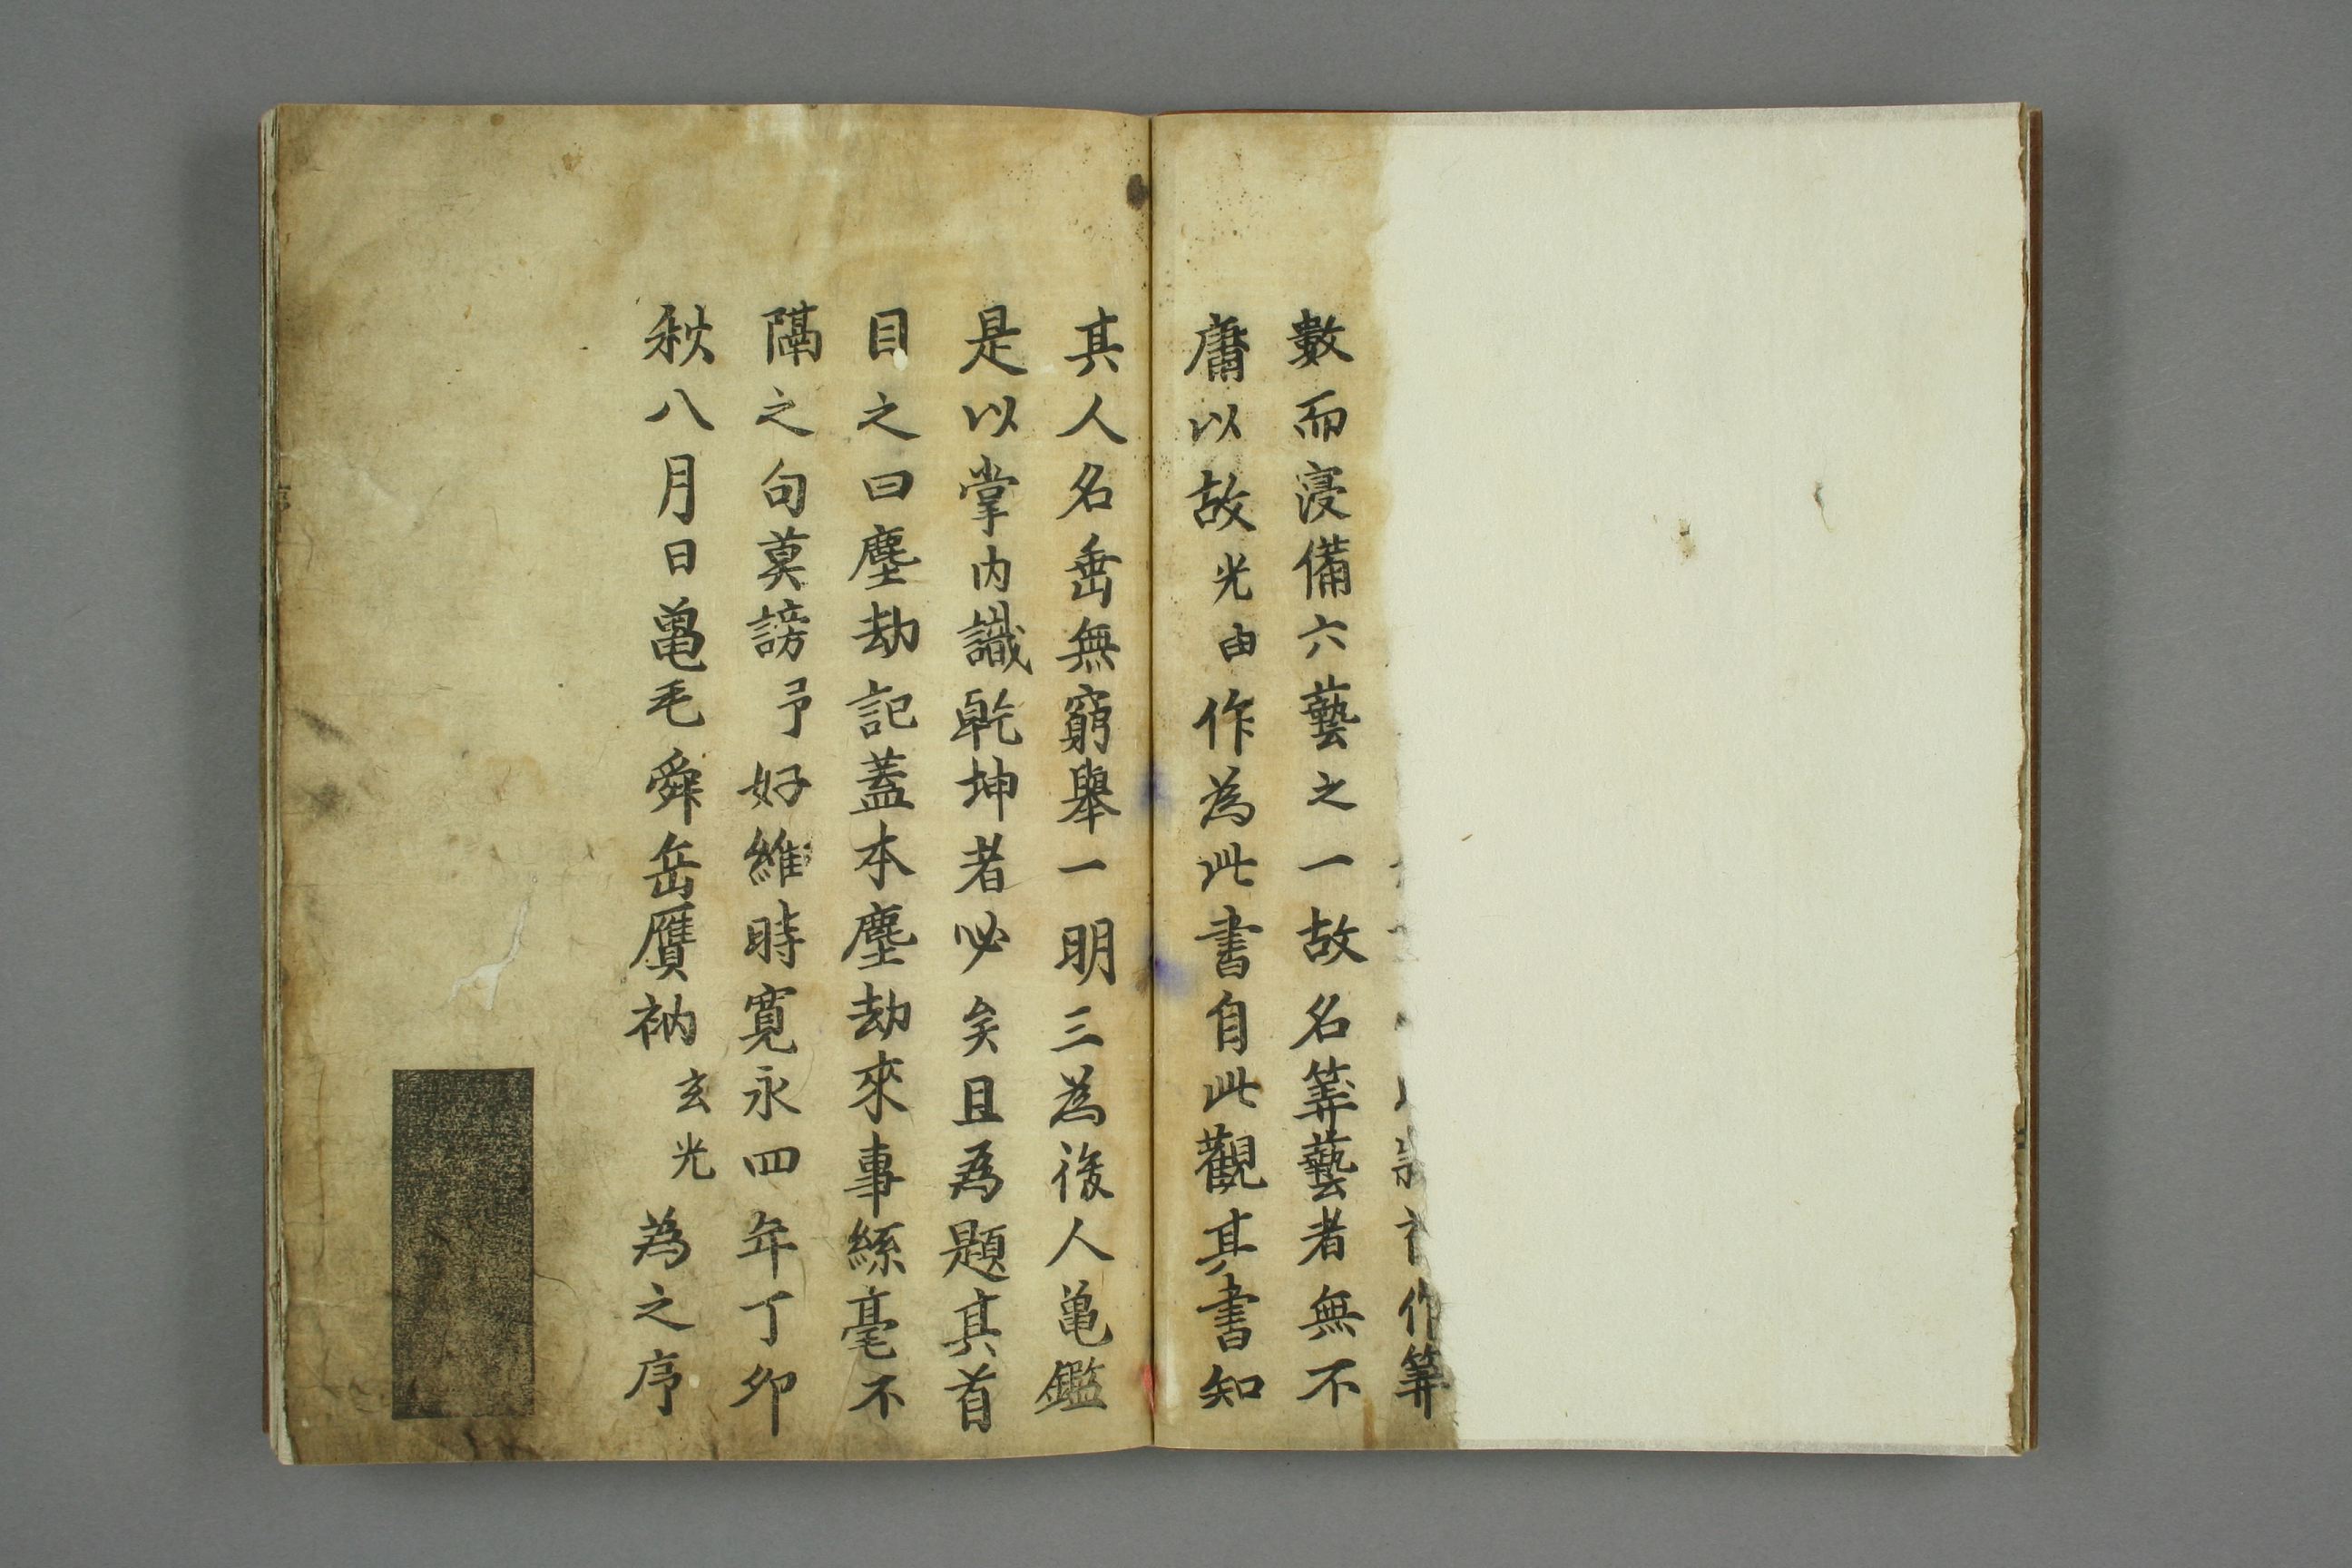 作筭
數而寖備六藝之一故名筭藝者無不
庸以故光由作為此書自此觀其書知
其人名垂無窮舉一明三為後人亀鑑
是以掌内識乾坤者必矣且為題其首
目之曰塵劫記蓋本塵劫來事絲毫不
隔之句莫謗予好維時寛永四年丁卯
秋八月日亀毛舜岳贋衲玄光為之序